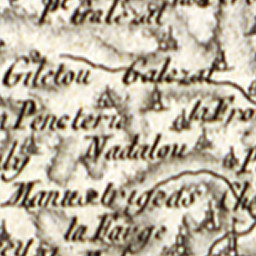 pt Galezat
Giletou Galezat
Peneteria la Fro
Nadalou
Manustrigeds Che
la Farge